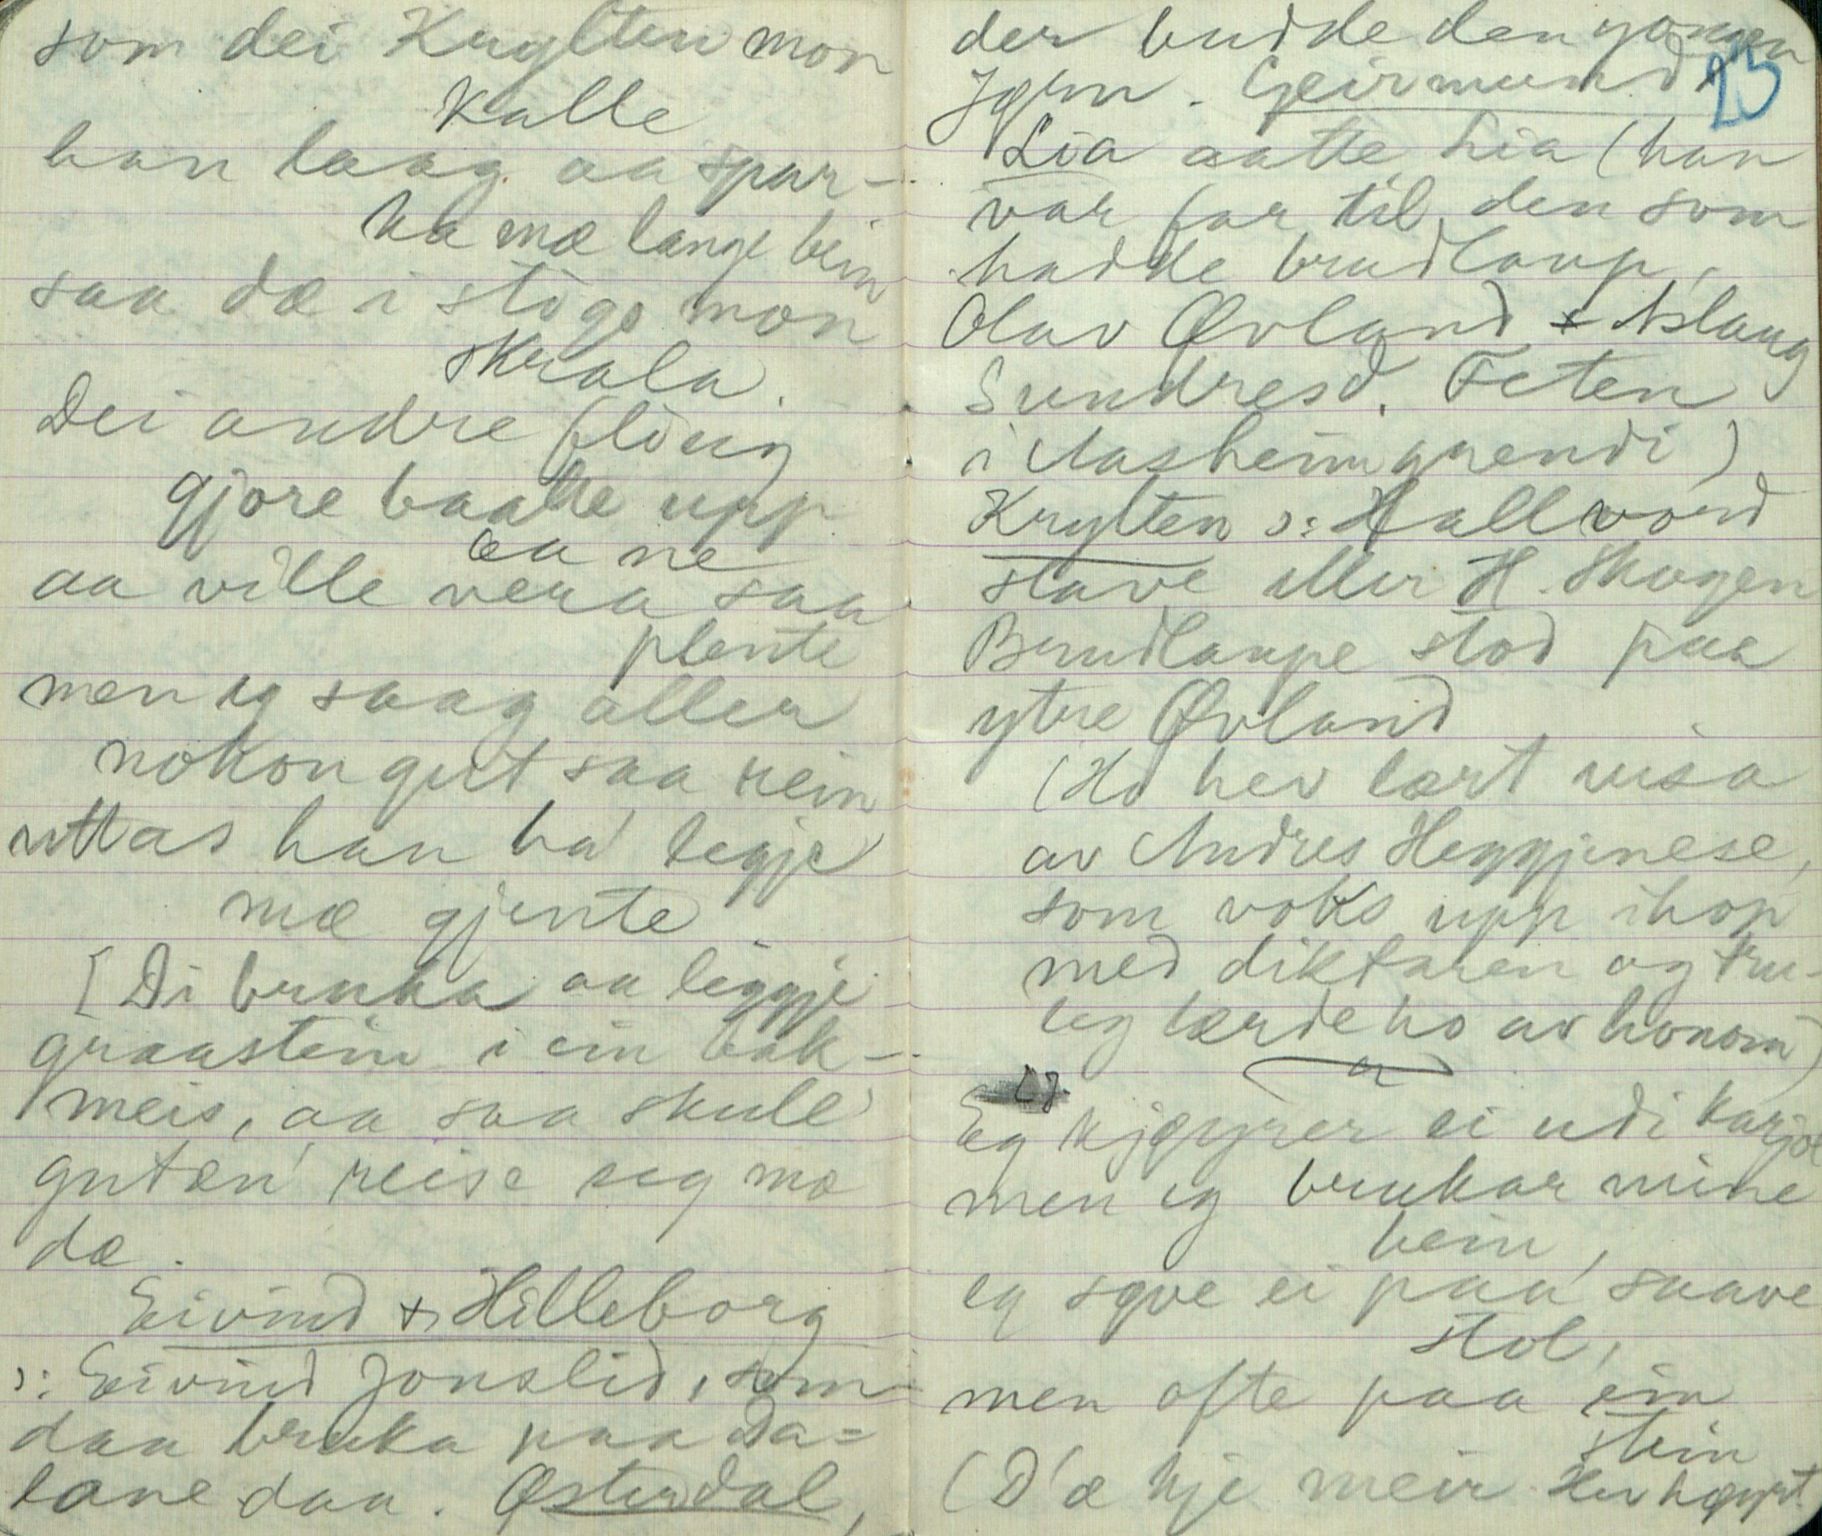 som dei Krylten mon
Kalle
han laag aa spar-
ka mæ lange bein
saa dæ i stógo mon
skrala.
Dei andre flóug
gjore baatte upp
aa ne
aa ville vera saa
plente
men eg saag aller
nokon gut saa rein
uttas han ha' legje
mæ gjente
[Di bruka aa leggje
graastein i ein bak-
meis, aa saa skull'
guten reise seg mæ
dæ.
Eivind & Hilleborg
ɔ: Eivind Jonslid, som
daa bruka paa Da=
lane daa. Østerdal,
der budde den gongen
Jørn. Geirmund
23
Lia aatte Lia (han
var far til den som
hadde brudlaup,
Olav Øvland & Aslaug
Sundresd. Feten
i Aasheimgrendi)
Krylten ɔ: Hallvord
stave eller H. Skogen
Brudlaupe stod paa
ytre Øvland
(Ho hev lært visa
av Andres Heggjenese,
som voks upp ihop
med diktaren og tru-
leg lærde ho av honom)
Eg kjøyrer ei udi karjol
men eg brukar mine
bein,
eg søve ei paa' snaave
stol,
men ofte paa ein
stein
(D'æ kje meir Hev høyrt